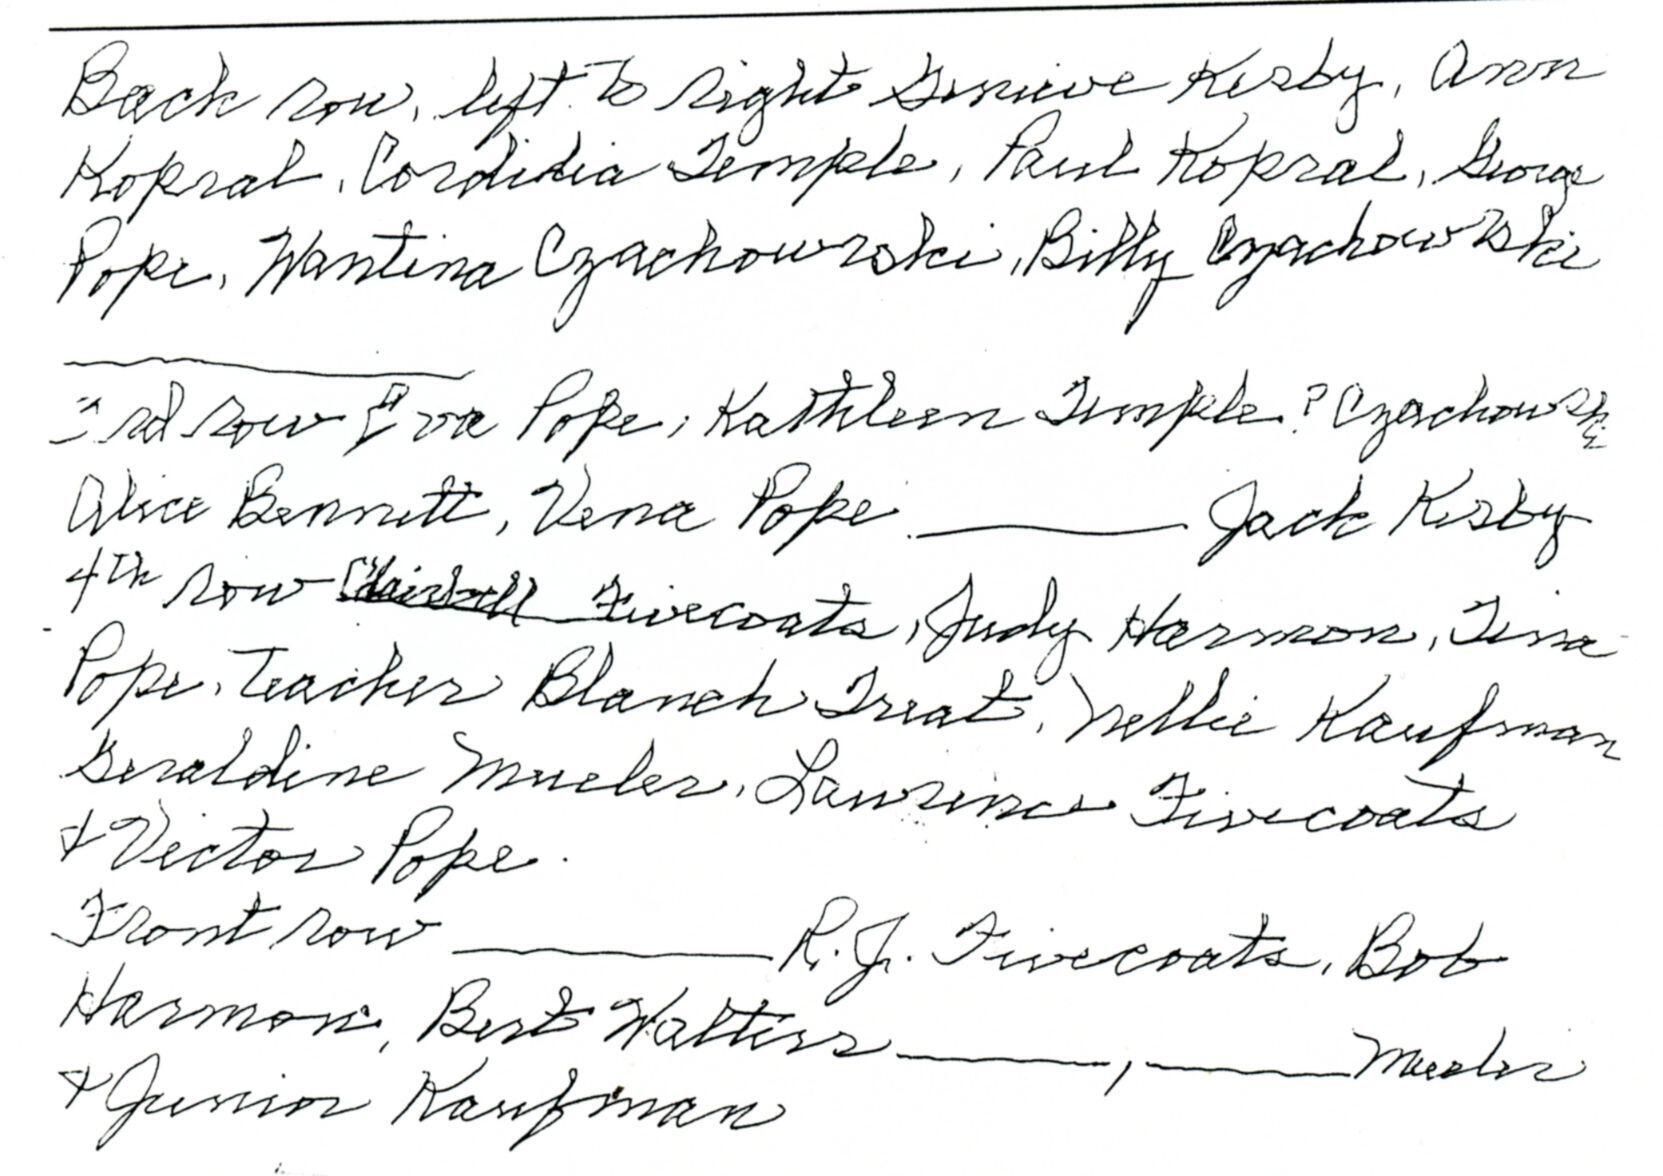 Back row, left to right Genieve Kirby, Ann
Kopral, Cordidia Temple, Paul Kopral, George
Pope, Wantina Czachowrski, Billy Czachowrski
3rd row Eva Pope, Kathleen Temple ? Czachowski
Alice Bennett, Vena Pope ______ Jack Kirby
4th row Fivecoats, Judy Harmon, Tina
Pope, Teacher Blanch Treat, Nellie Kaufman
Geraldine Mueler, Lawrence Fivecoats
& Victor Pope.
Front row ______ R.J. Fivecoats, Bob
Harmon, Bert Walters ______, ______ Mueler
& Junior Kaufman